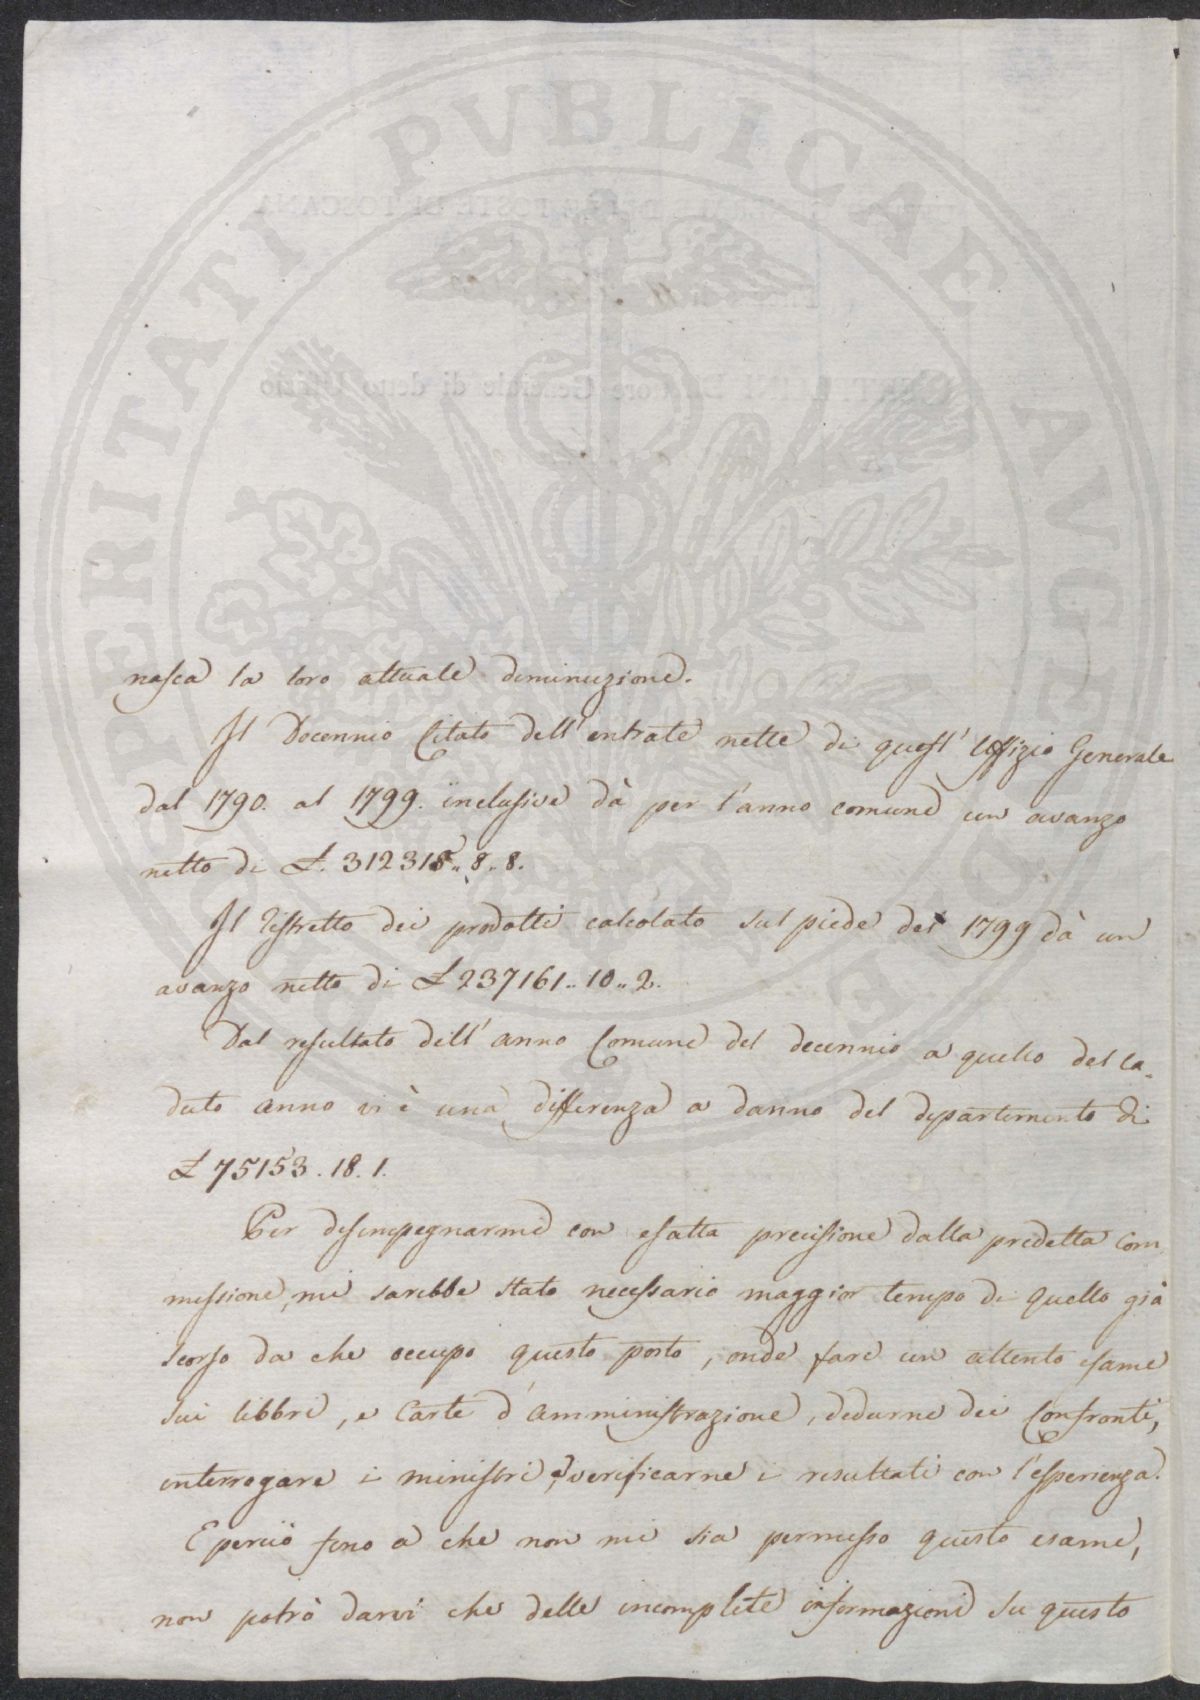 nasca la loro attuale diminuzione.
Il Decennio Citato dell'entrate nette di quest'Uffizio Generale
dal 1790. al 1799. inclusive dà per l'anno comune un avanzo
netto di £. 312315.. 8.. 8.
Il ristretto dei prodotti calcolato sul piede del 1799 dà un
avanzo netto di £ 237161.. 10.. 2.
Dal resultato dell'anno Comune del decennio a quello del ca-
duto anno vi è una differenza a danno del departimento di
£ 75153. 18. 1.
Per disimpegnarmi con esatta precisione dalla predetta Com
messione, mi sarebbe stato necessario maggior tempo di quello già
scorso da che occupo questo posto, onde fare un attento esame
sui libbri, e Carte d'amministrazione, dedurne dei Confronti,
interrogare i ministri e verificarne i resultati con l'esperienza.
E perciò fino a che non mi sia permesso questo esame,
non potrò darvi che delle incomplete informazioni su questo